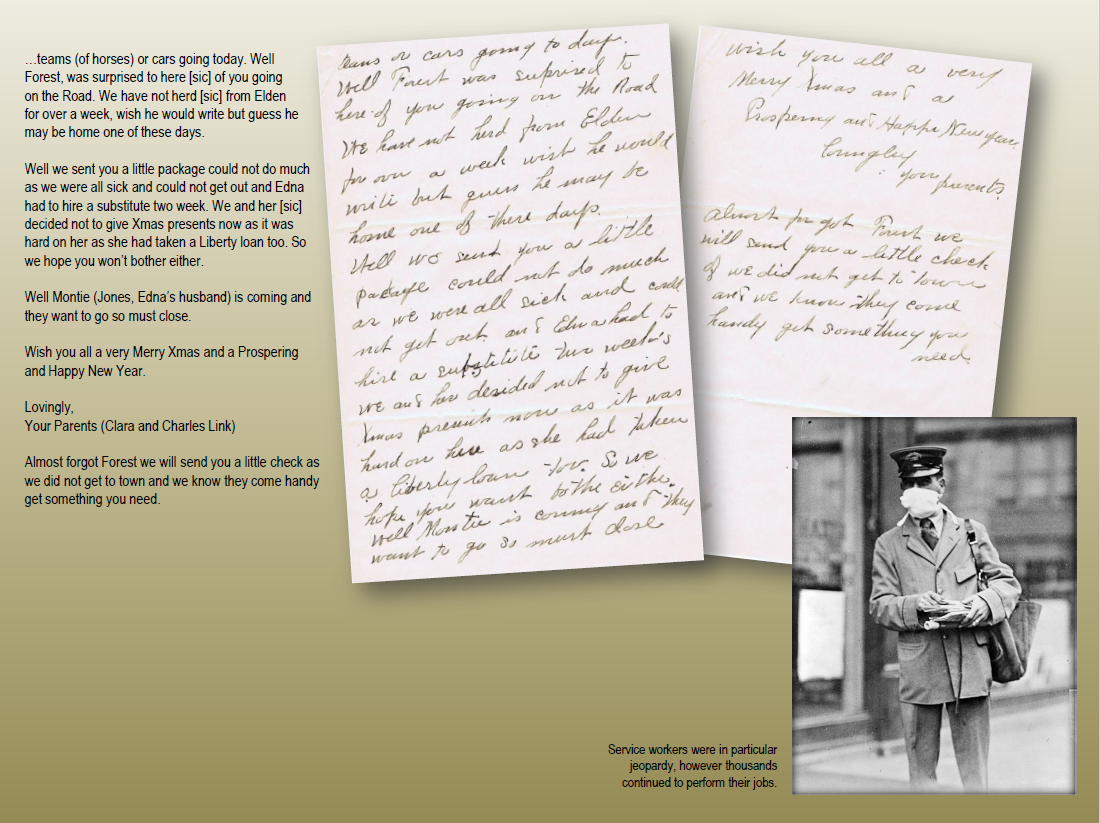 …teams (of horses) or cars going today. Well
Forest, was surprised to here [sic] of you going
on the Road. We have not herd [sic] from Elden
for over a week, wish he would write but guess he
may be home one of these days.
Well we sent you a little package could not do much
as we were all sick and could not get out and Edna
had to hire a substitute two week. We and her [sic]
decided not to give Xmas presents now as it was
hard on her as she had taken a Liberty loan too. So
we hope you won’t bother either.
Well Montie (Jones, Edna’s husband) is coming and
they want to go so must close.
Wish you all a very Merry Xmas and a Prospering
and Happy New Year.
Lovingly,
Your Parents (Clara and Charles Link)
Almost forgot Forest we will send you a little check as
we did not get to town and we know they come handy
get something you need.
teams or cars going to day.
Well Forest was suprised to
here of you going on the Road
We have not herd from Elden
for over a week wish he would
write but guess he may be
home one of these days.
Well we send you a little
package could not do much
as we were all sick and could
not get out and Edna had to
hire a substitute two week's
we and her desided not to give
Xmas presents now as it was
hard on here as she had taken
a liberty loan too. So we
hope you wont bothe eithe.
Well Montie is coming and they
want to go so must close
wish you all a very
Merry Xmas and a
Prospering and Happe New year.
Lovingley
your parents.
almost for got Forest we
will send you a little check
we did not get to town
and we know they come
handy get something you
need.
Service workers were in particular
jeopardy, however thousands
continued to perform their jobs.